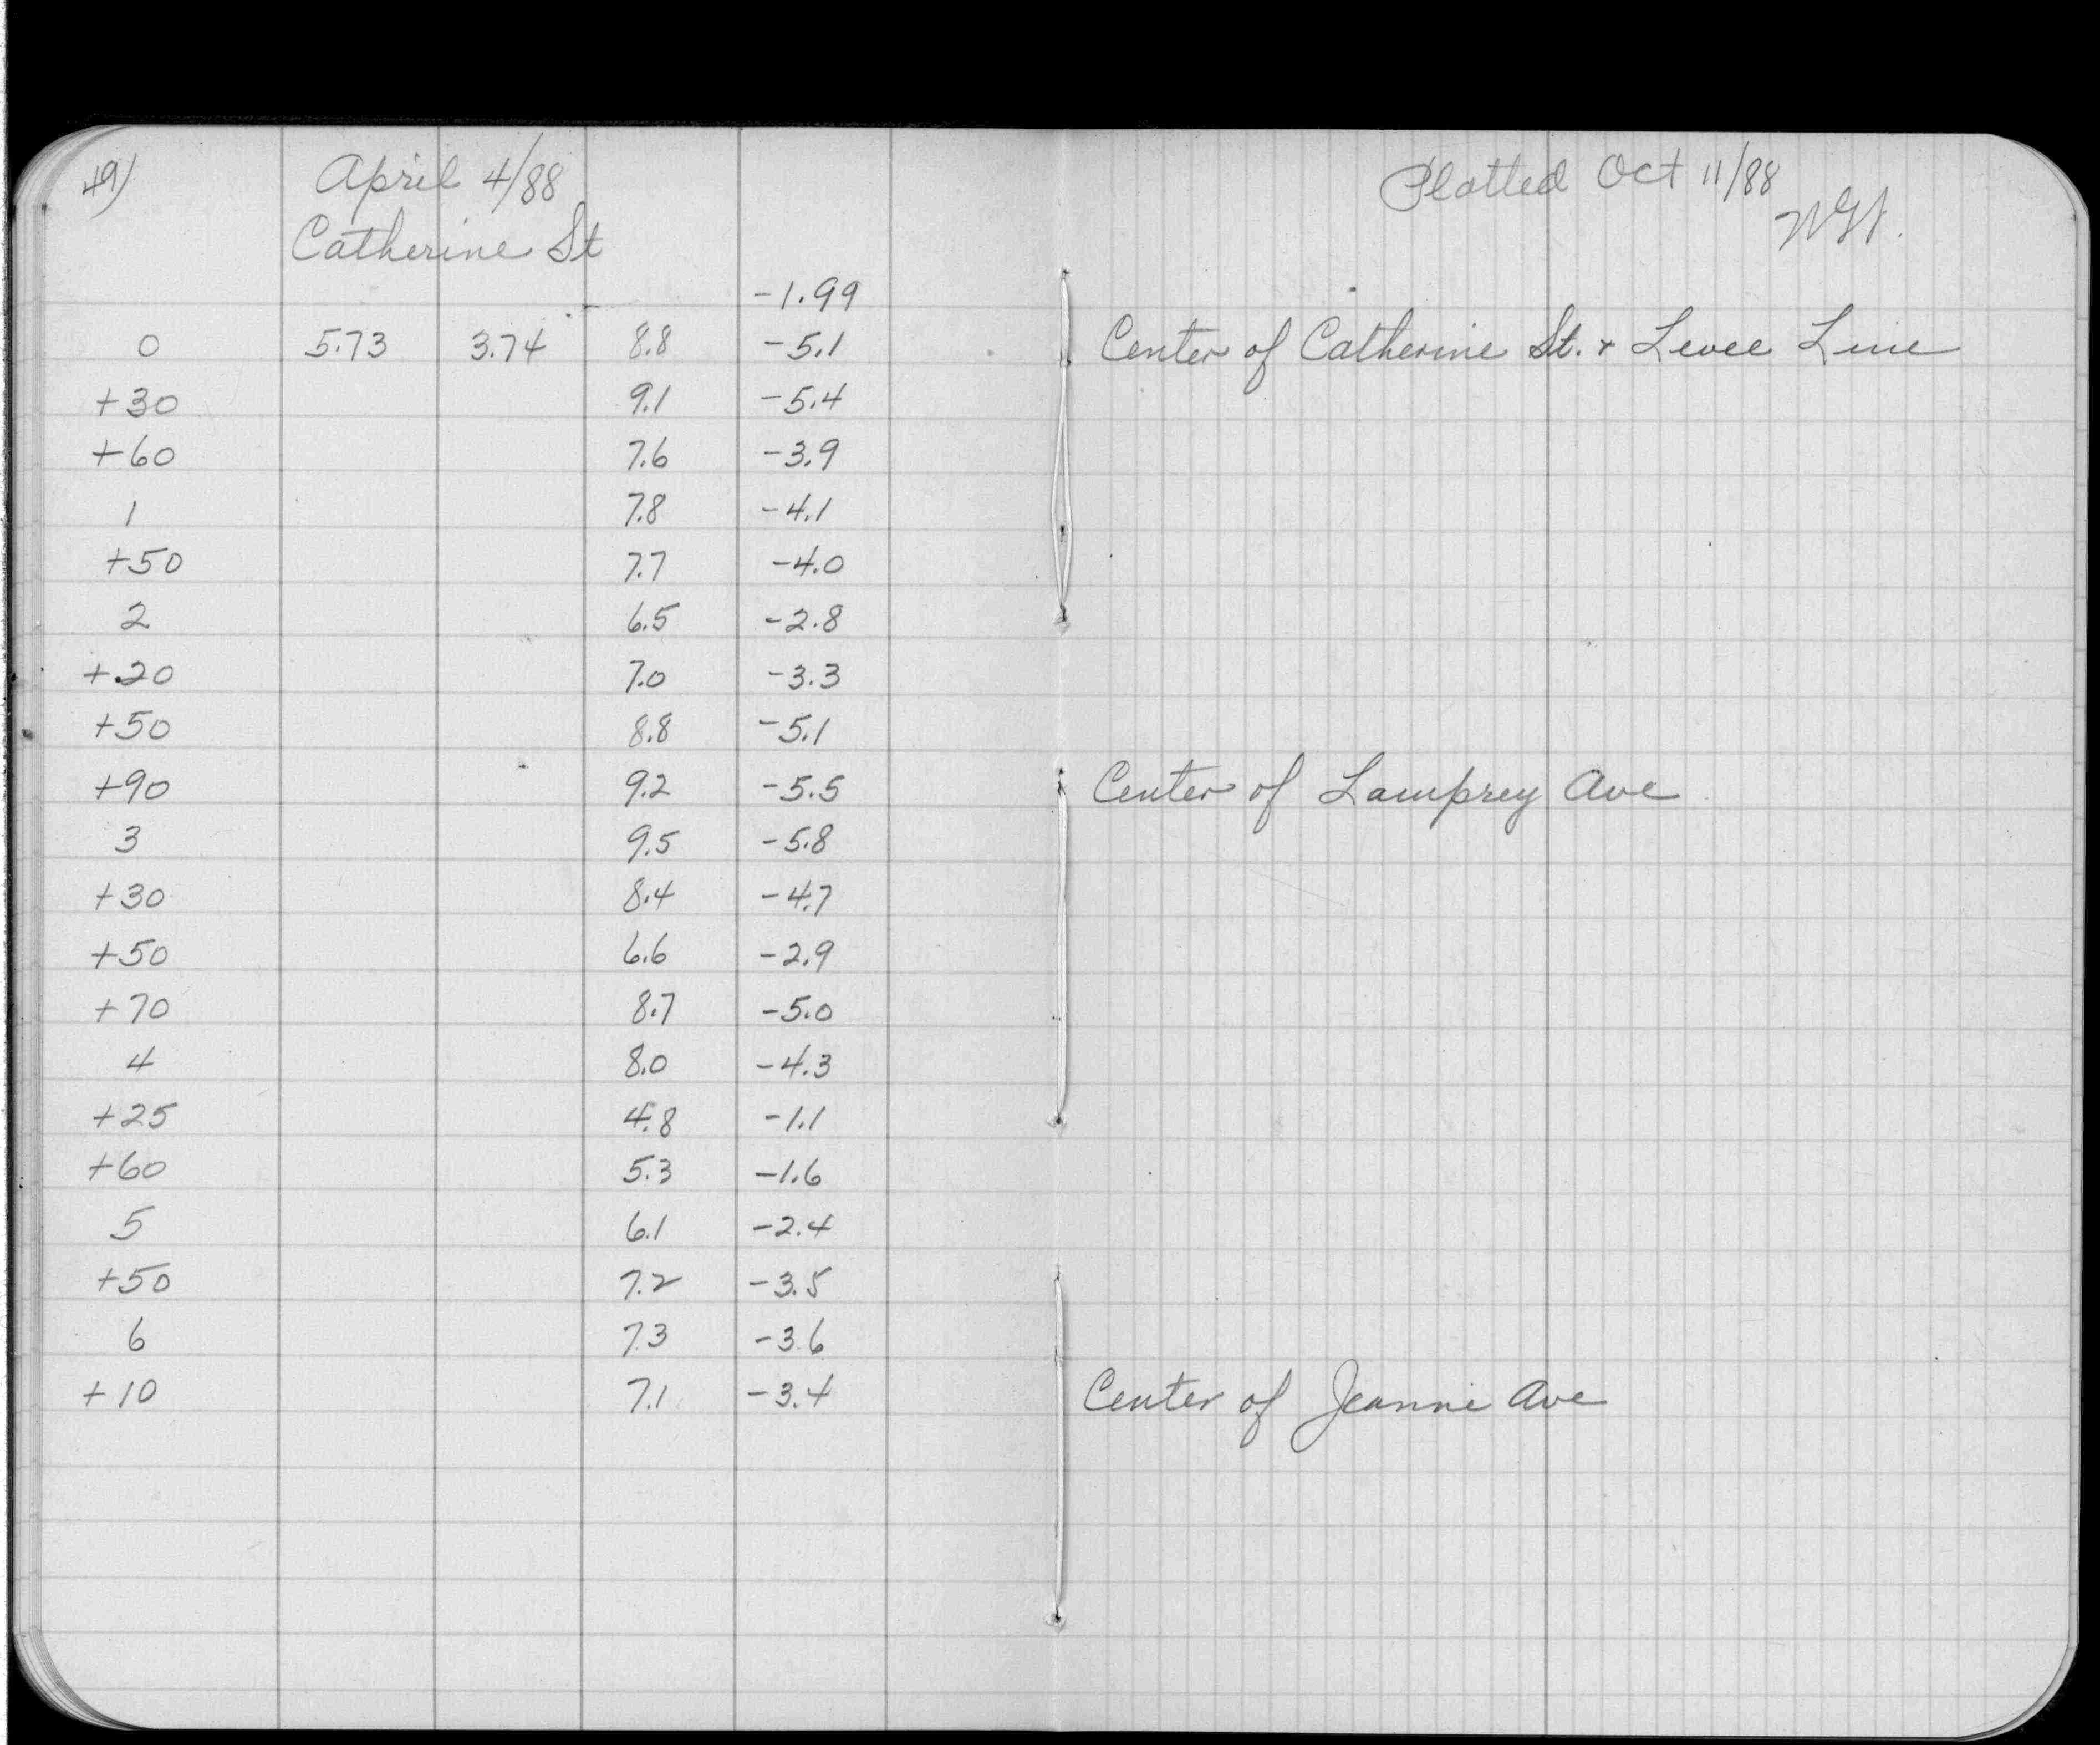 49)
April 4/88
Catherine St
Plotted Oct 11/88
-1.99
0 5.73 3.74 8.8 -5.1 Center of Catherine St. & Levee Line
+30 9.1 -5.4
+60 7.6 -3.9
1 7.8 -4.1
+50 7.7 -4.0
2 6.5 -2.8
+20 7.0 -3.3
+50 8.8 -5.1
+90 9.2 -5.5 Center of Lamprey Ave
3 9.5 -5.8
+30 8.4 -4.7
+50 6.6 -2.9
+70 8.7 -5.0
4 8.0 -4.3
+25 4.8 -1.1
+60 5.3 -1.6
5 6.1 -2.4
+50 7.2 -3.5
6 7.3 -3.6
+10 7.1 -3.4 Center of Jeanne Ave